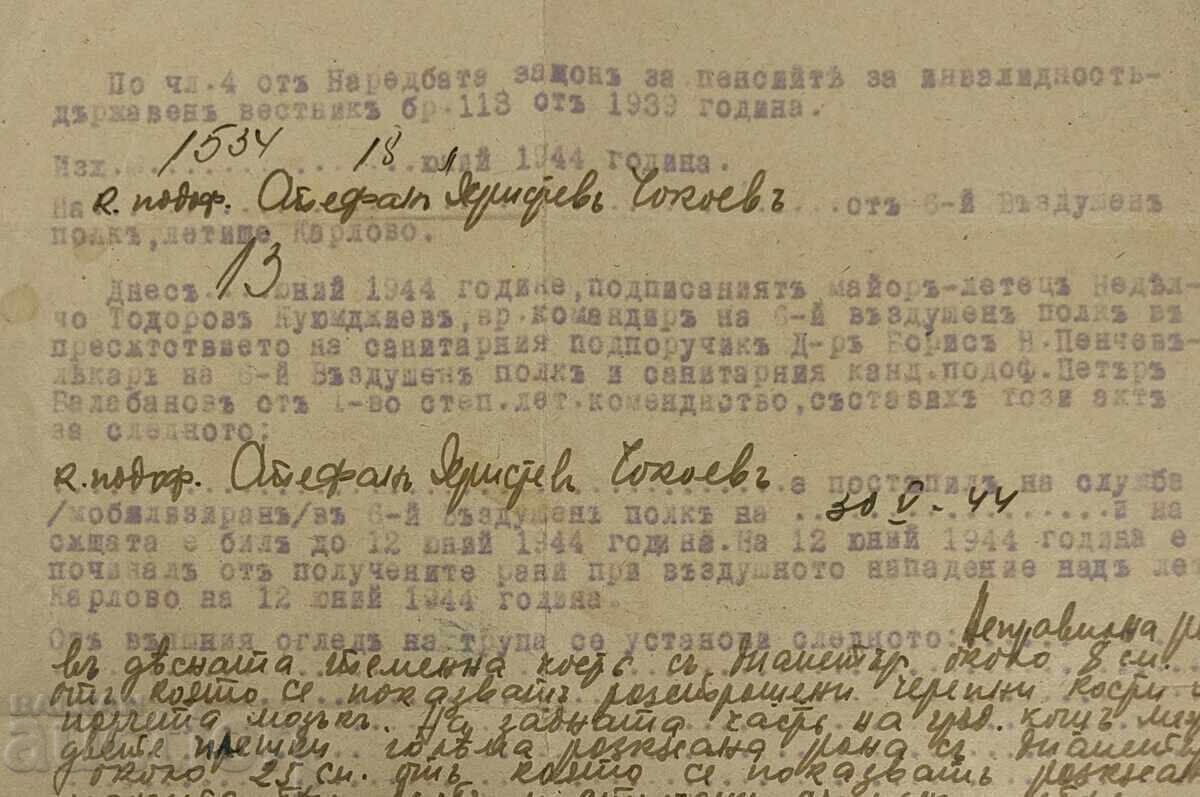 По чл.4 отъ Наредбата законъ за пенсийтѣ за инвалидность-
държавенъ вестникъ бр.113 отъ 1939 година.
Изх. 1534 18 юний 1944 година.
На к. подоф. Стефанъ Христевъ Чокоевъ отъ 6-й Въздушенъ
полкъ,летище Карлово.
Днесъ 13 юний 1944 године,подписаниятъ майоръ-летецъ Недѣл-
чо Тодоровъ Куюмджиевъ,вр.командиръ на 6-й въздушенъ полкъ въ
пресѫтствието на санитарния подпоручик Д-ръ Борисъ Н.Пенчевъ-
лѣкарь на 6-й Въздушенъ полкъ и санитарния канд.подоф.Петъръ
Балабановъ отъ 1-во степ.лет.комендство,съставихъ този актъ
за следното:
к. подоф. Стефанъ Христевъ Чокоевъ е постѫпилъ на служба
/мобилизиранъ/въ 6-й Въздушенъ полкъ на 30 V - 44 и на
сѫщата е билъ до 12 юний 1944 година.На 12 юний 1944 година е
починалъ отъ получените рани при въздушното нападение надъ лет
Карлово на 12 юний 1944 година.
Отъ външния огледъ на трупа се установи следното: Неправилна
въ дѣсната теменна часть съ диаметъръ около 8 см.
отъ която се показватъ разтрошени черепни кости
мозъкъ. На задната часть на грѫд. кошъ
голѣма разкѫсана рана съ
около 25 см. отъ която се показватъ